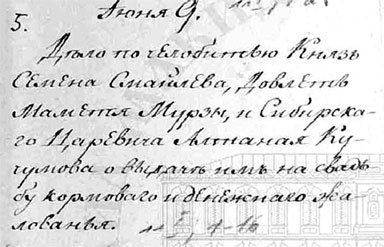 5. Июня 9.
Дѣло по челобитью Князь
Семена Смайлева, Довлетъ
Маметя Мурзы, и Сибирска-
го Царевича Алтаная Ку-
чумова о выдачѣ имъ на свадь-
бу кормоваго и денежнаго жа-
лованья.